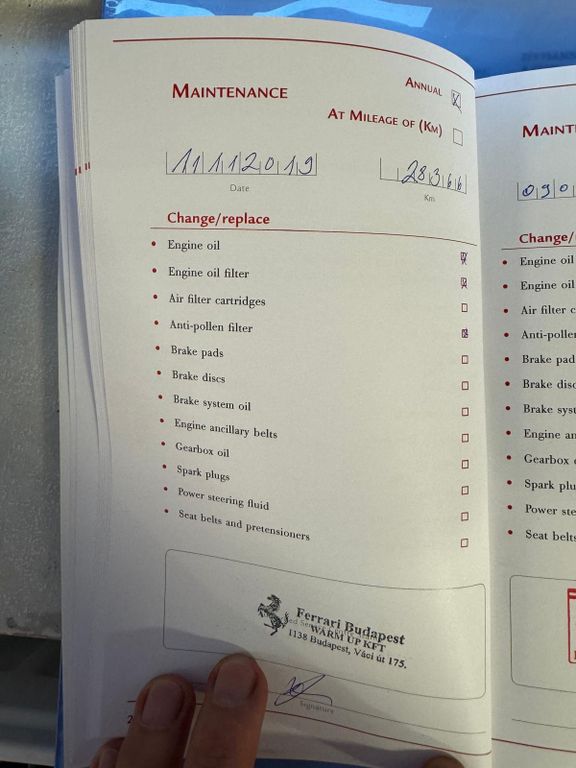 MAINTENANCE
ANNUAL
AT MILEAGE OF (KM)
11112019
Date
28366
Km
Change/replace
• Engine oil
• Engine oil filter
• Air filter cartridges
• Anti-pollen filter
• Brake pads
• Brake discs
• Brake system oil
• Engine ancillary belts
• Gearbox oil
• Spark plugs
• Power steering fluid
• Seat belts and pretensioners
Ferrari Budapest
WARM UP KFT
1138 Budapest, Váci út 175.
Signature
2
MAINT
090
Change/
• Engine oil
• Engine oil
• Air filter c
• Anti-pollen
• Brake pad
• Brake disc
• Brake syst
• Engine an
• Gearbox o
• Spark plu
• Power stee
• Seat belts